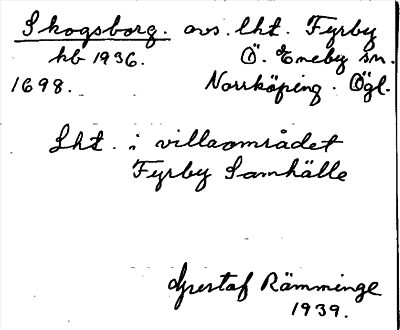 Skogsborg. avs. lht. Fyrby
kb 1936. Ö. Eneby sn.
1698. Norrköping. Ögl.
Lht. i villaområdet
Fyrby Samhälle
Gustaf Rämminge
1939.